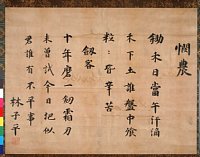 憫農
鋤禾日當午汗滴
禾下土誰盤中飧
粒〻皆辛苦
劔客
十年磨一劔霜刃
未曾試今日把似
君誰有不平事
林子平